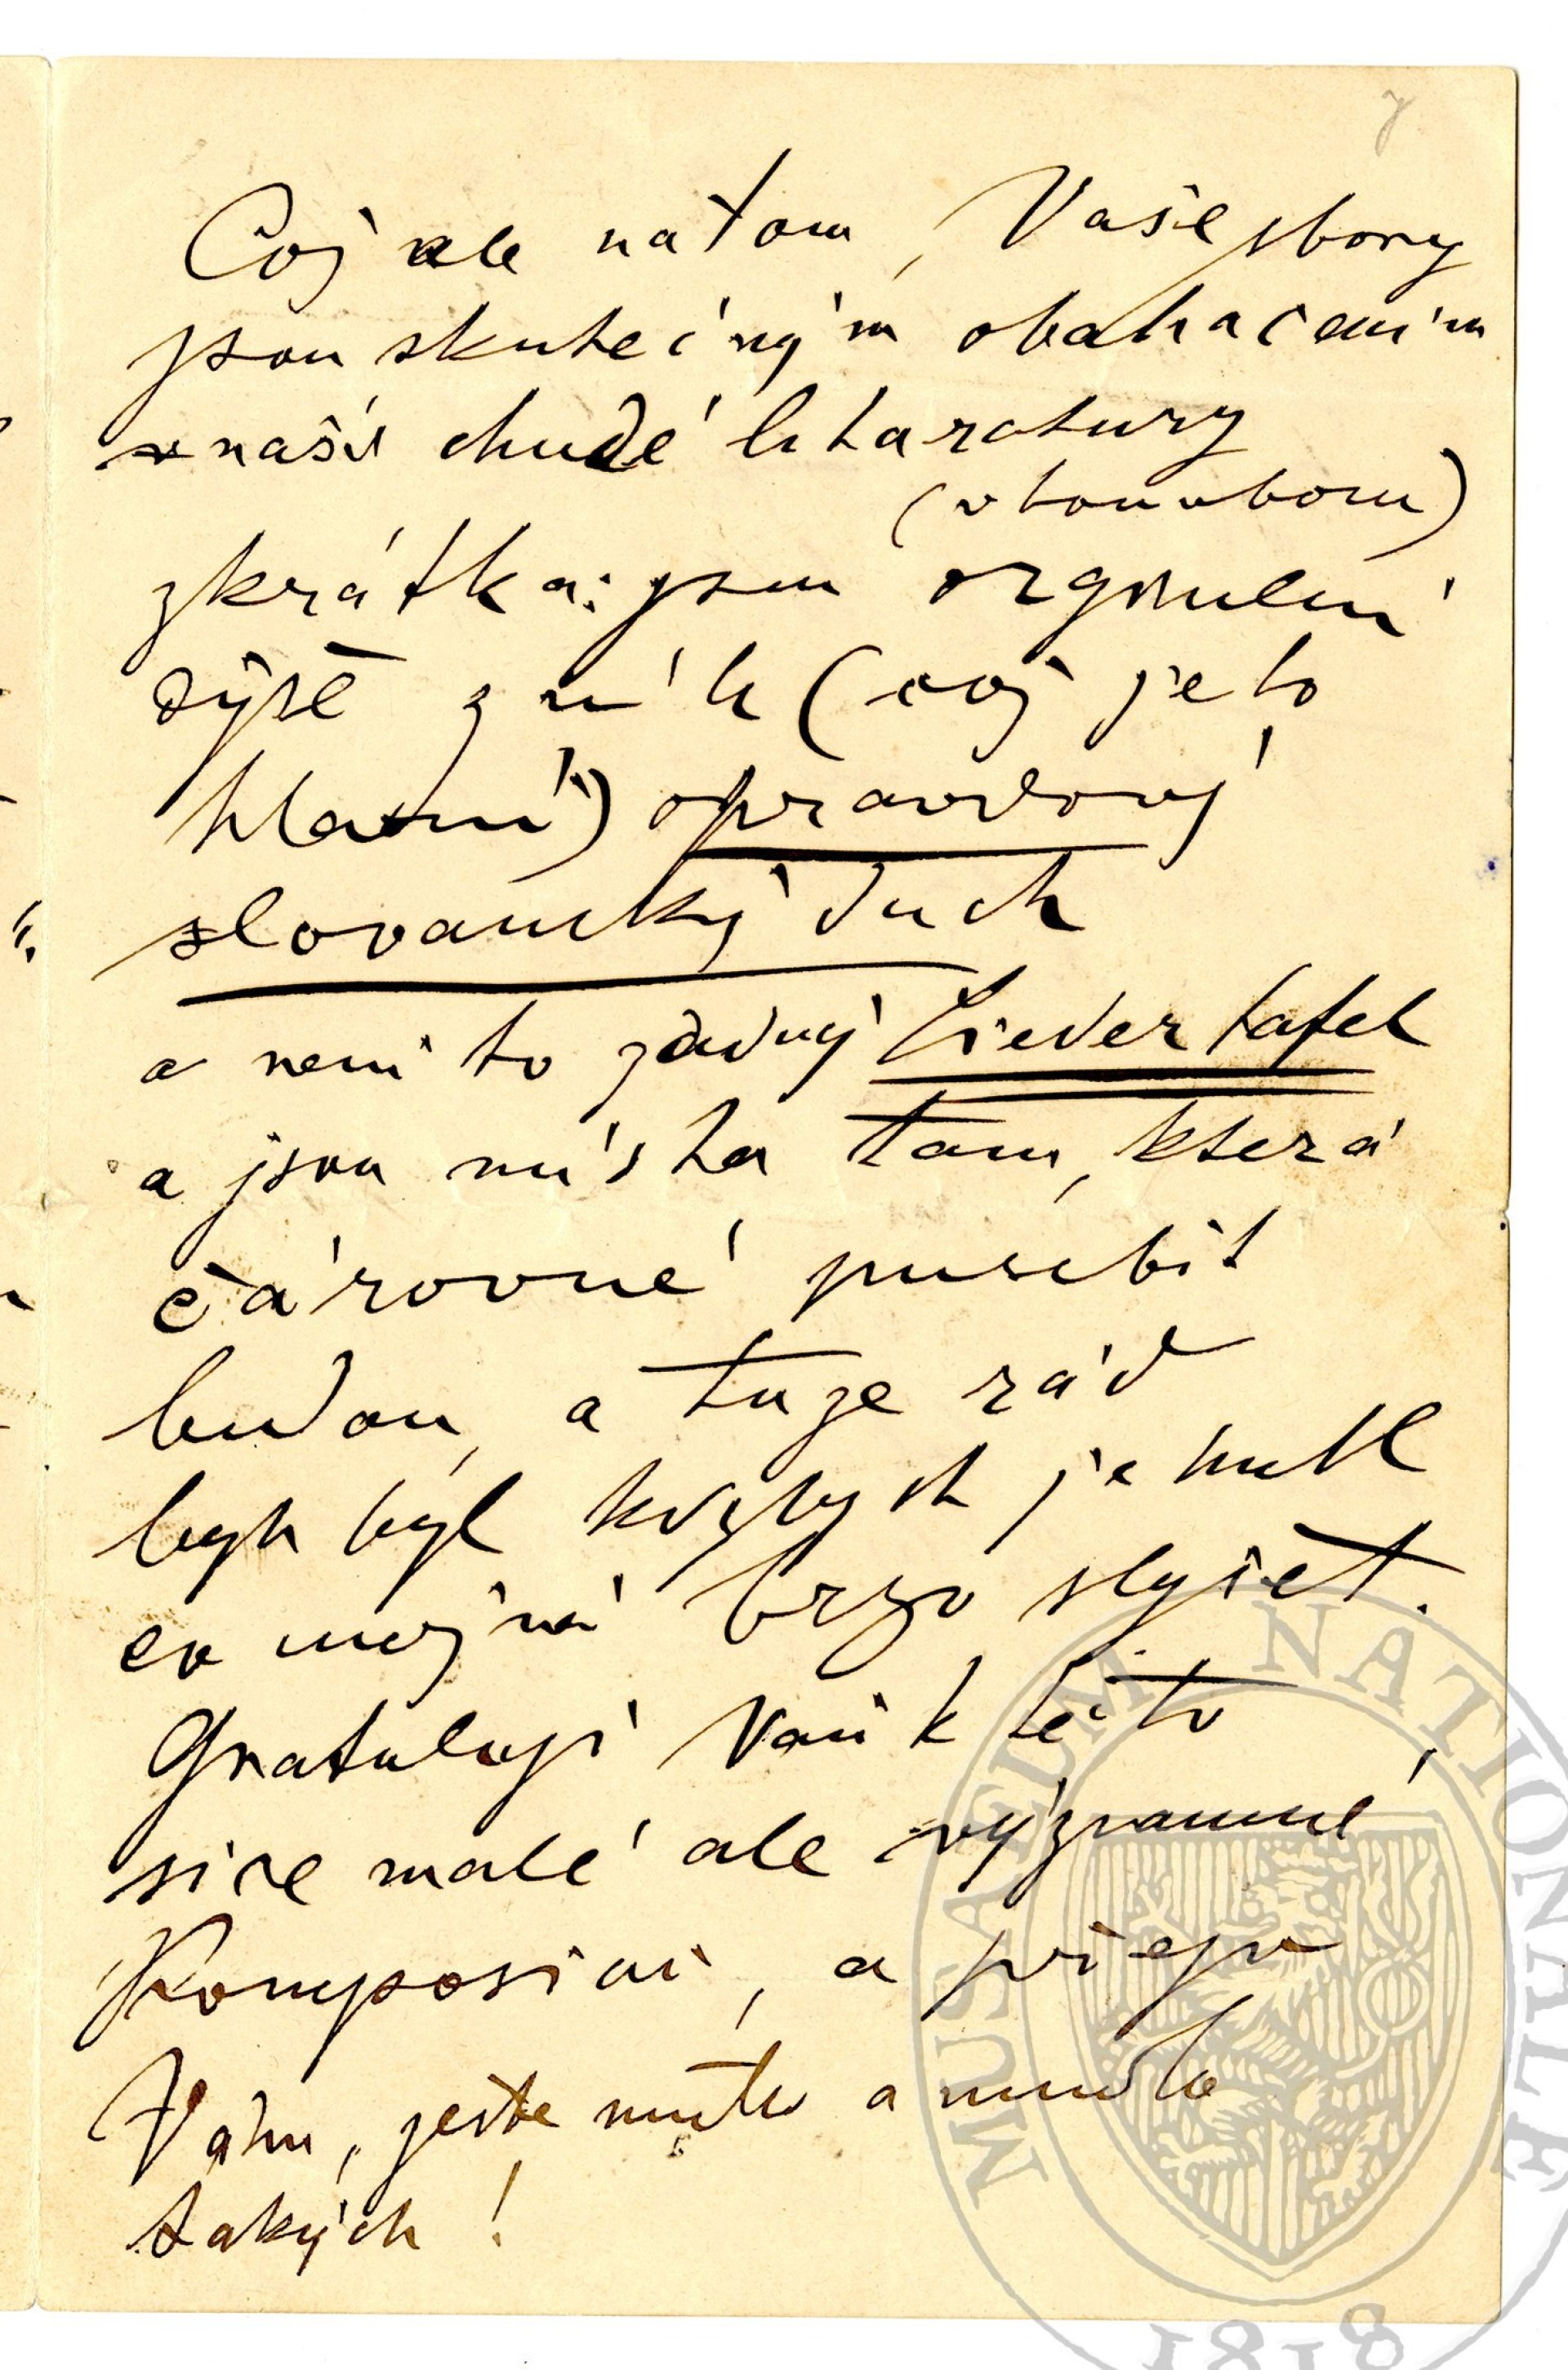 Což ale na tom, Vaše sbory
jsou skutečným obohacením
naší chudé literatury
(v tom oboru)
zkrátka: jsou orginelní
dýše z nich (což je to
hlavní) opravdový
slovanský duch
a není to žádný Liedertafel
a jsou místa tam, která
čárovné působit
budou, a tuze rád
bych byl kdybych je mohl
co možná brzo slyšet.
Gratuluji Vám k této,
sice malé ale významné
Komposici, a přeju
Vám, ještě mnoho a mnoho
takých!
MUSAEUM NATIONALE
1818